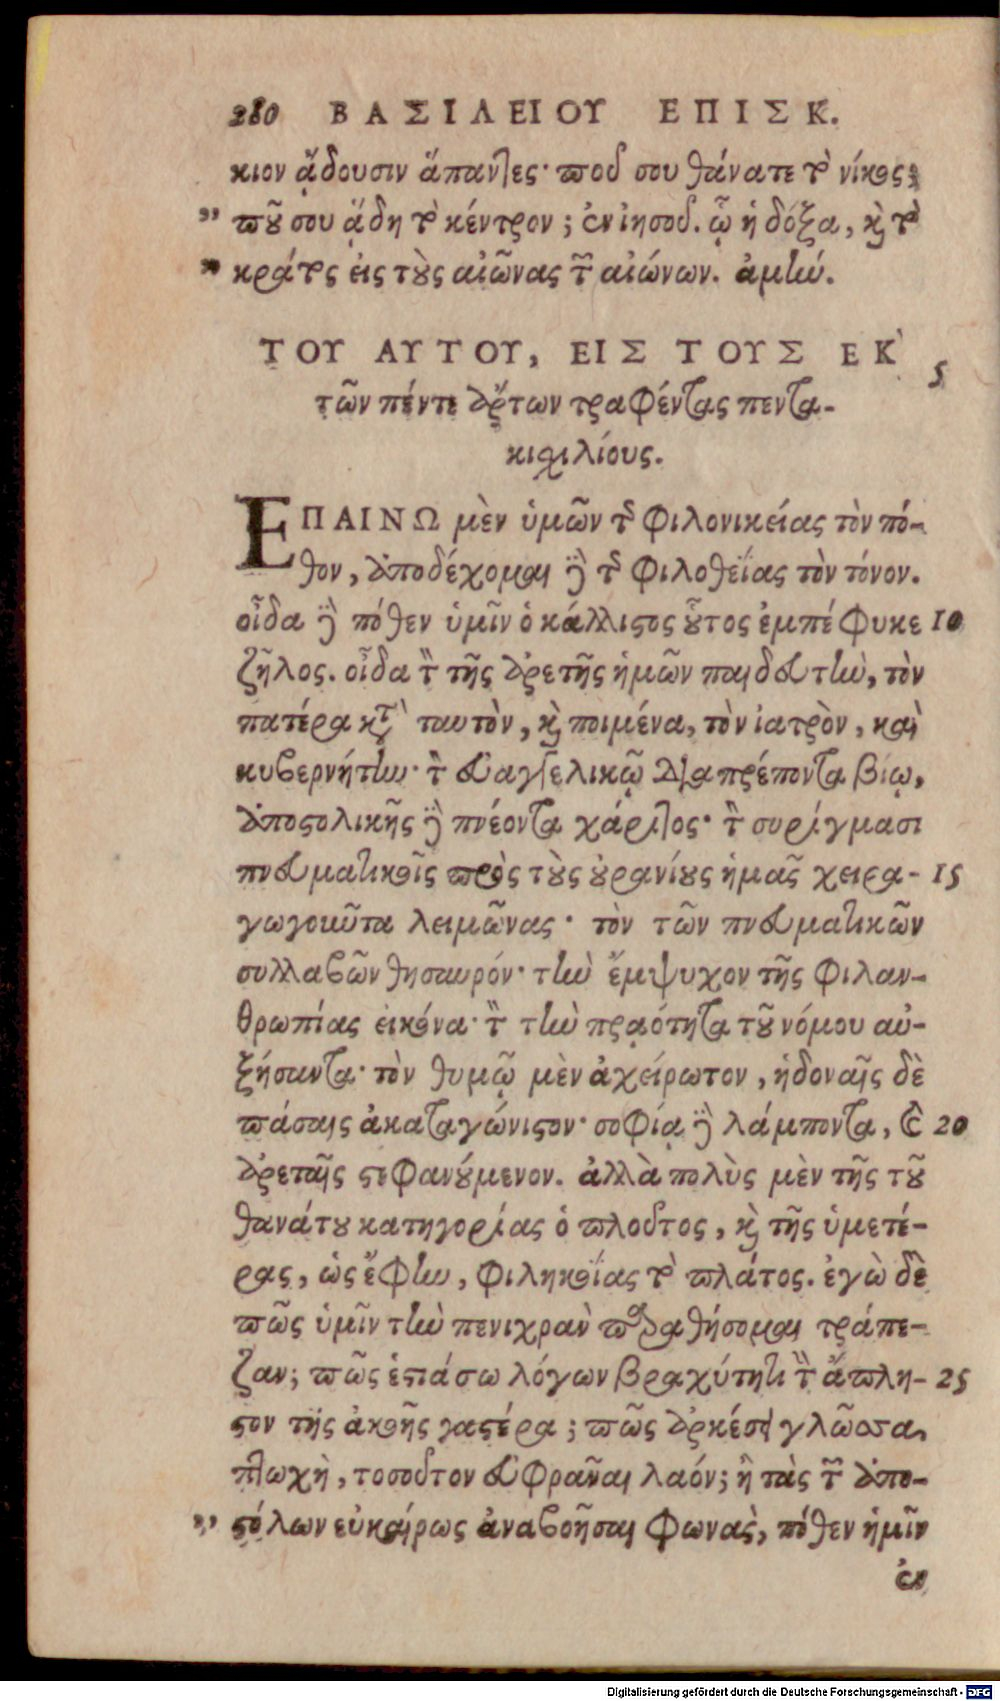 280 ΒΑΣΙΛΕΙΟΥ ΕΠΙΣΚ.
κιον ᾄδουσιν ἅπαντες· ποῦ σου θάνατε τὸ νίκος;
" ποῦ σου ᾅδη τὸ κέντρον; ἐν ἰησοῦ. ᾧ ἡ δόξα, καὶ τὸ
" κράτος εἰς τοὺς αἰῶνας τῶν αἰώνων. ἀμήν.
ΤΟΥ ΑΥΤΟΥ, ΕΙΣ ΤΟΥΣ ΕΚ 5
τῶν πέντε ἄρτων τραφέντας πεντα-
κισχιλίους.
ΕΠΑΙΝΩ μὲν ὑμῶν τῆς φιλονικείας τὸν πό-
θον, ἀποδέχομαι δὲ τῆς φιλοθεΐας τὸν τόνον.
οἶδα δὲ πόθεν ὑμῖν ὁ κάλλιστος οὗτος ἐμπέφυκε 10
ζῆλος. οἶδα τὸν τῆς ἀρετῆς ἡμῶν παιδευτὴν, τὸν
πατέρα κατὰ ταυτὸν, καὶ ποιμένα, τὸν ἰατρὸν, καὶ
κυβερνήτην· τὸν εὐαγγελικῷ διαπρέποντα βίῳ,
ἀποστολικῆς δὲ πνέοντα χάριτος· τὸν συρίγμασι
πνευματικοῖς πρὸς τοὺς οὐρανίους ἡμᾶς χειρα- 15
γωγοῦντα λειμῶνας· τὸν τῶν πνευματικῶν
συλλαβῶν θησαυρόν· τὴν ἔμψυχον τῆς φιλαν-
θρωπίας εἰκόνα· τὸν τὴν πραότητα τοῦ νόμου αὐ-
ξήσαντα· τὸν θυμῷ μὲν ἀχείρωτον, ἡδοναῖς δὲ
πάσαις ἀκαταγώνιστον· σοφίᾳ δὲ λάμποντα, καὶ 20
ἀρεταῖς στεφανούμενον. ἀλλὰ πολὺς μὲν τῆς τοῦ
θανάτου κατηγορίας ὁ πλοῦτος, καὶ τῆς ὑμετέ-
ρας, ὡς ἔφην, φιληκοΐας τὸ πλάτος. ἐγὼ δὲ
πῶς ὑμῖν τὴν πενιχρὰν παραθήσομαι τράπε-
ζαν; πῶς ἑστιάσω λόγων βραχύτητι τὸν ἄπλη- 25
στον τῆς ἀκοῆς γαστέρα; πῶς ἀρκέσει γλῶσσα,
πτωχὴ, τοσοῦτον εὐφρᾶναι λαόν; ἢ τὰς τῶν ἀπο-
" στόλων εὐκαίρως ἀναβοῆσαι φωνὰς, πόθεν ἡμῖν
ἐν
Digitalisierung gefördert durch die Deutsche Forschungsgemeinschaft - DFG